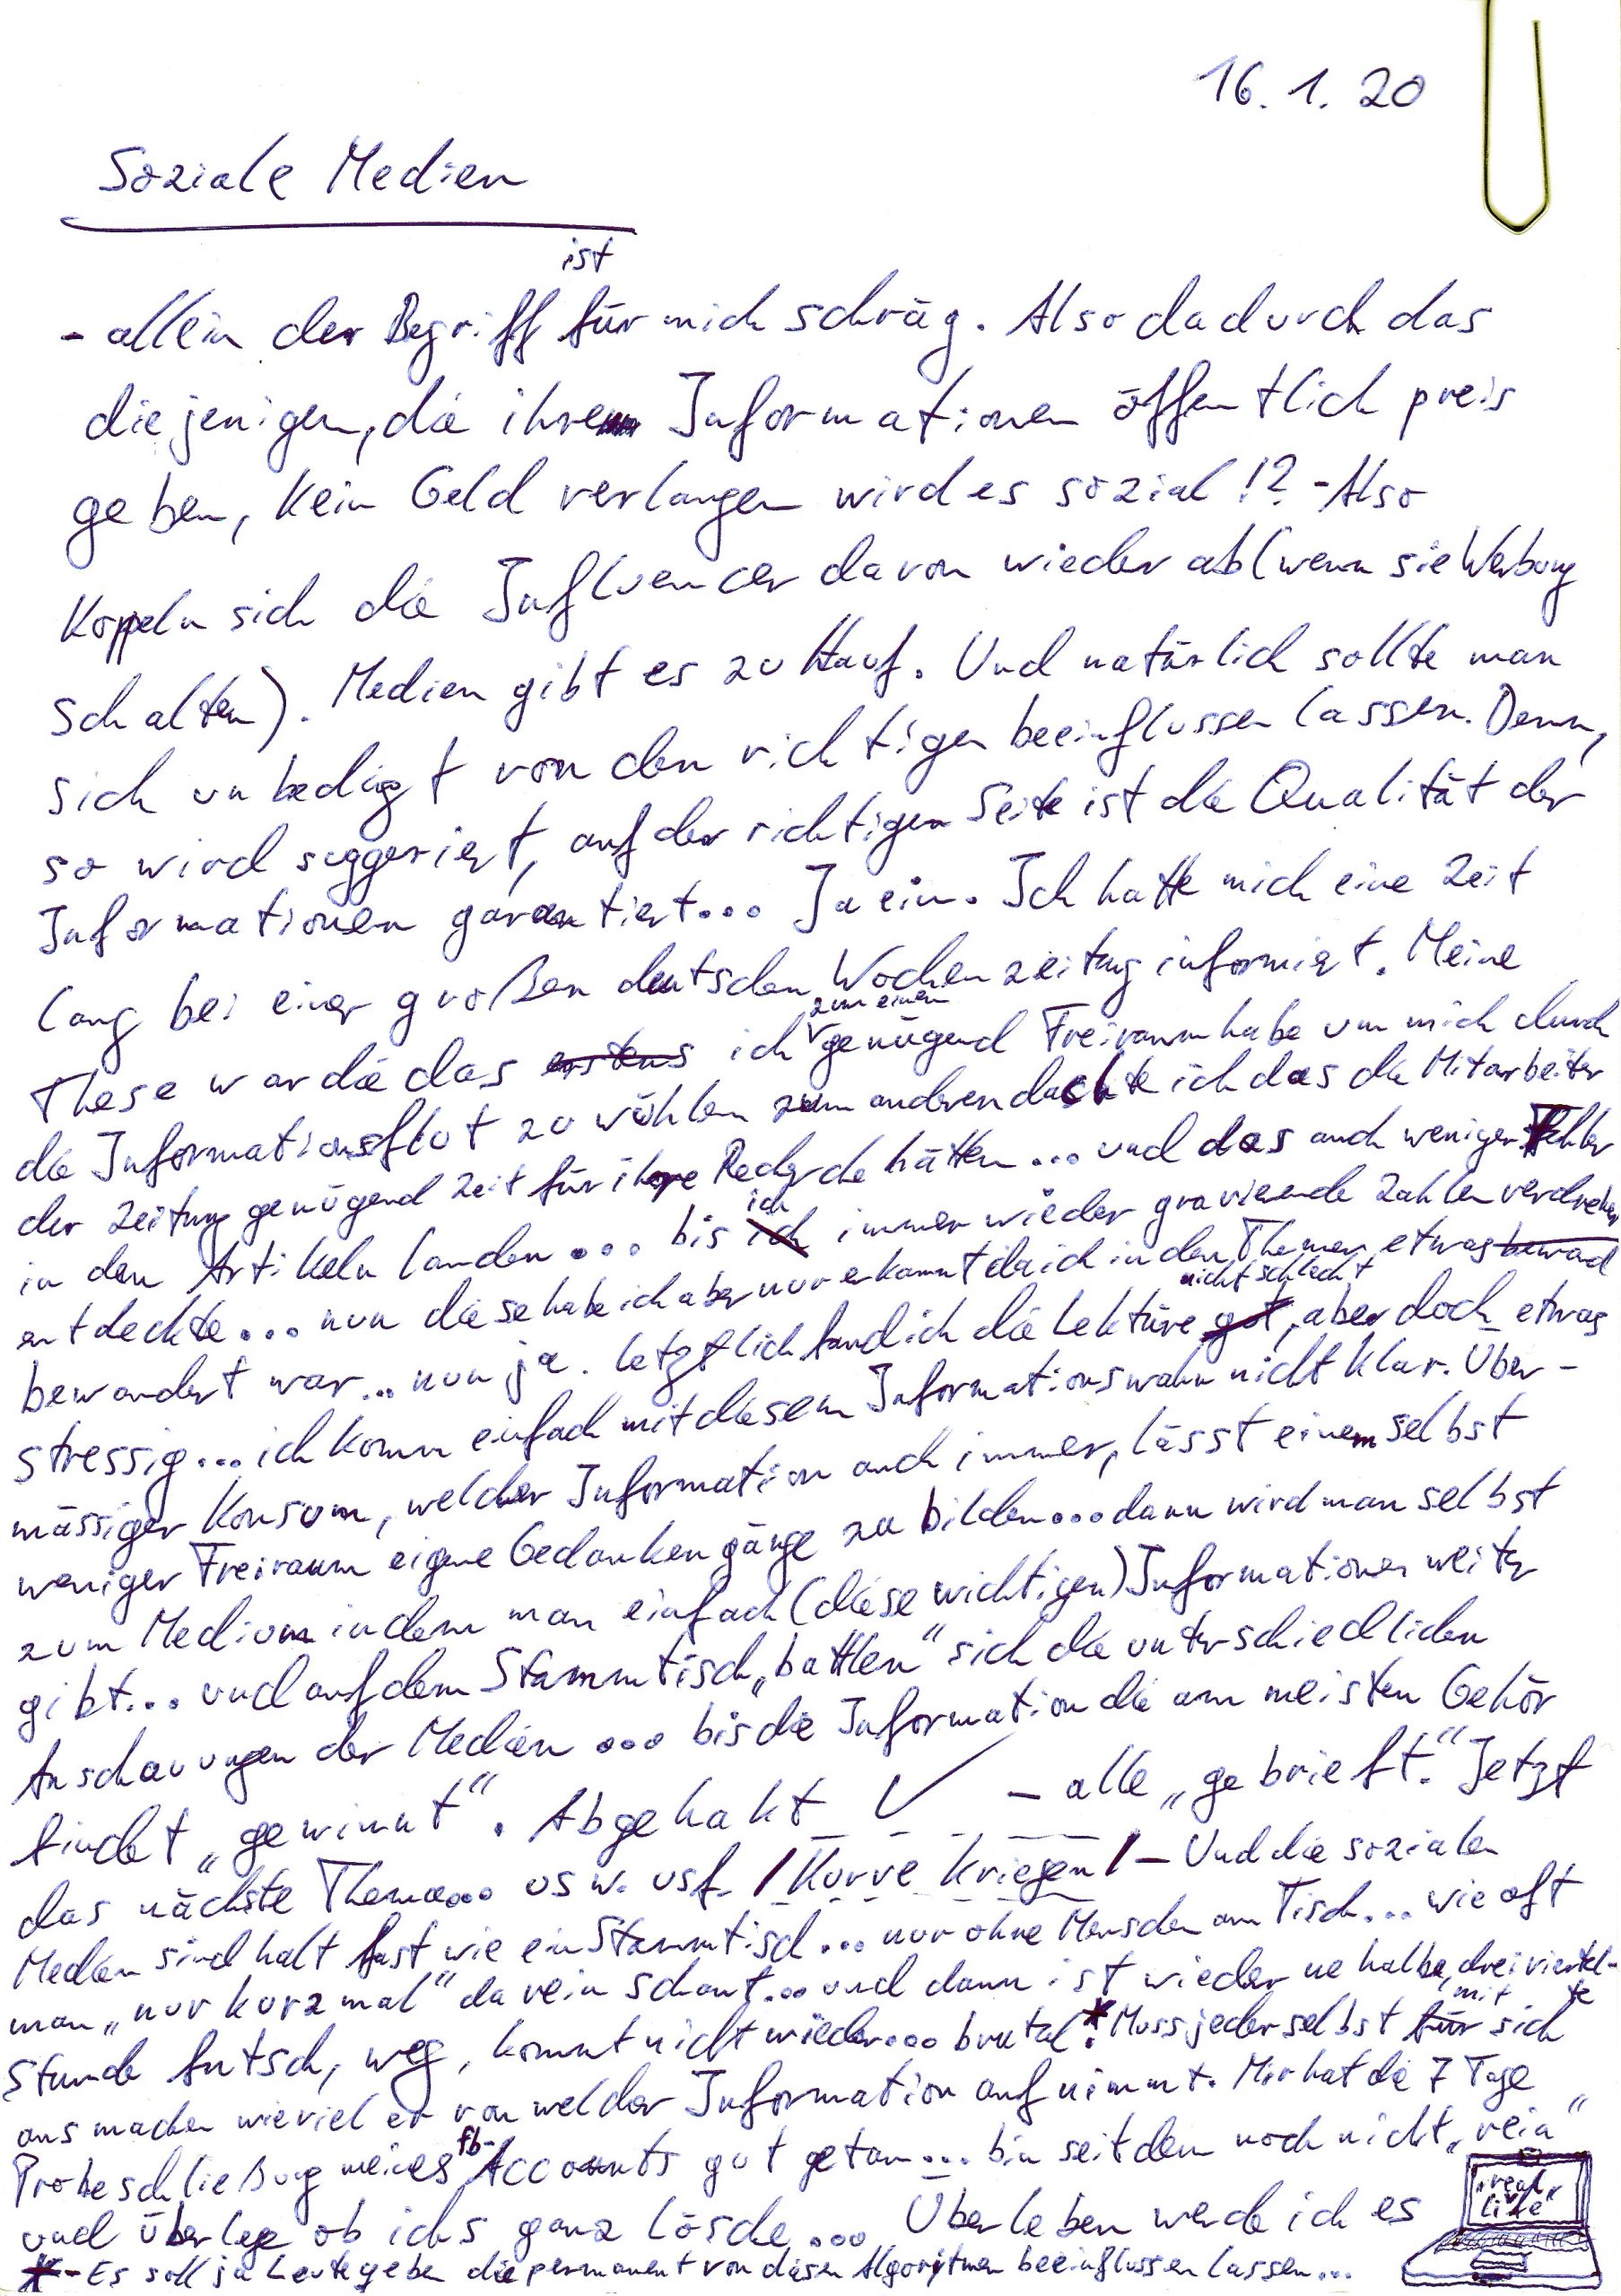 16. 1. 20
Soziale Medien
ist
- allein der Begriff für mich schräg. Also dadurch das
diejenigen, die ihre Informationen öffentlich preis
geben, kein Geld verlangen wird es sozial!? - Also
koppeln sich die Influencer davon wieder ab (wenn sie Werbung
schalten). Medien gibt es zu Hauf. Und natürlich sollte man
sich unbedigt von den richtigen beeinflussen lassen. Denn,
so wird suggeriert, auf der richtigen Seite ist die Qualität der
Informationen garantiert... Jaein. Ich hatte mich eine Zeit
lang bei einer großen deutschen Wochenzeitung informiert. Meine
zum einen
These war die das erstens ich genügend Freiraum habe um mich durch
die Informationsflut zu wühlen zum anderen dachte ich das die Mitarbeiter
der Zeitung genügend Zeit für ihre Recherche hätten... und das auch weniger Fehler
ich
in den Artikeln landen... bis ich immer wieder gravierende Zahlenverdreher
entdeckte... nun diese habe ich aber nur erkannt da ich in den Themen etwas bewand
nicht schlecht
bewandert war... nun ja. Letztlich fand ich die Lektüre gut, aber doch etwas
stressig... ich komm einfach mit diesem Informationswahn nicht klar. Über-
mässiger Konsum, welcher Information auch immer, lässt einem selbst
weniger Freiraum eigene Gedankengänge zu bilden... dann wird man selbst
zum Medium indem man einfach (diese wichtigen) Informationen weiter
gibt... und auf dem Stammtisch „battlen“ sich die unterschiedlichen
Anschauungen der Medien... bis die Information die am meisten Gehör
findet „gewinnt“. Abgehakt ✓ - alle „gebrieft.“ Jetzt
das nächste Thema... usw. usf. / Kurve kriegen / - Und die sozialen
Medien sind halt fast wie ein Stammtisch... nur ohne Menschen am Tisch... wie oft
man „nur kurz mal“ da rein schaut... und dann ist wieder ne halbe, dreiviertel-
mit te
Stunde futsch, weg, kommt nicht wieder... brutal*. Muss jeder selbst für sich
ausmachen wieviel er von welcher Information aufnimmt. Mir hat die 7 Tage
fb-
Probeschließung meines Accounts gut getan... bin seitdem noch nicht „rein“
und überlege ob ichs ganz lösche... Überleben werde ich es
„real life“
* - Es soll ja Leute geben die permanent von diesen Algoritmen beeinflussen lassen...